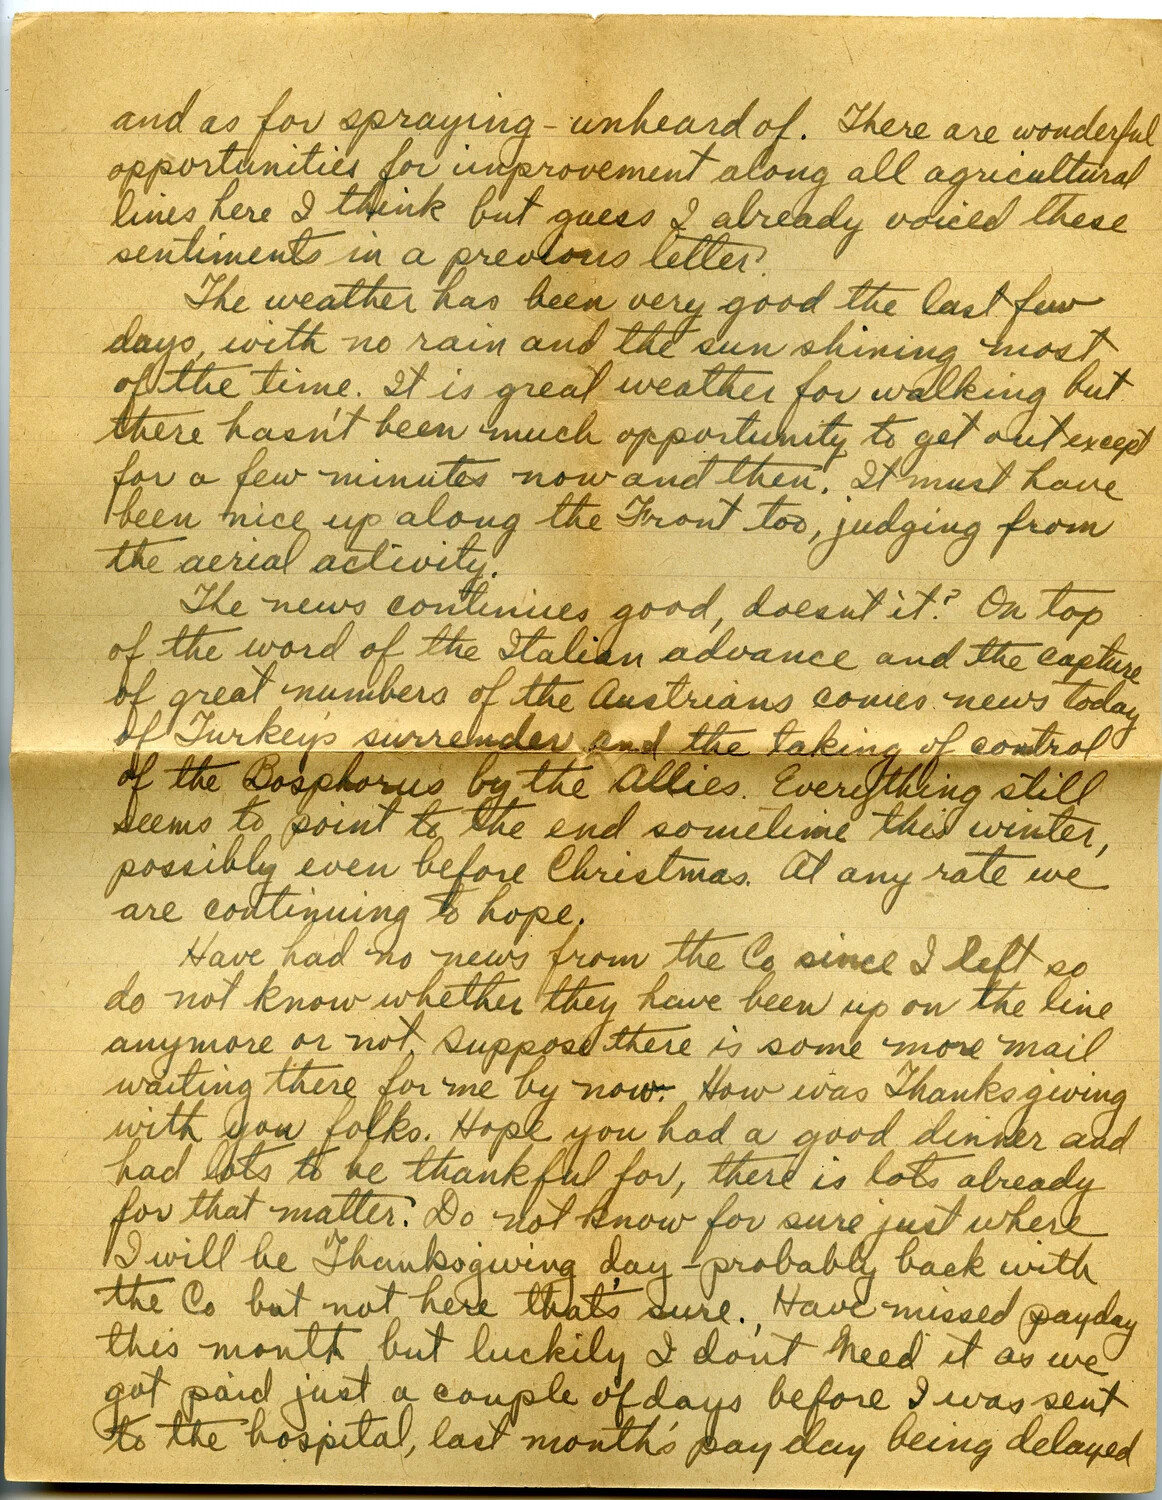 and as for spraying - unheard of. There are wonderful
opportunities for improvement along all agricultural
lines here I think but guess I already voiced these
sentiments in a previous letter.
The weather has been very good the last few
days, with no rain and the sun shining most
of the time. It is great weather for walking but
there hasn't been much opportunity to get out except
for a few minutes now and then. It must have
been nice up along the Front too, judging from
the aerial activity.
The news continues good, doesnt it? On top
of the word of the Italian advance and the capture
of great numbers of the Austrians comes news today
of Turkey's surrender and the taking of control
of the Bosphorus by the Allies. Everything still
seems to point to the end sometime this winter,
possibly even before Christmas. At any rate we
are continuing to hope.
Have had no news from the Co since I left so
do not know whether they have been up on the line
anymore or not. Suppose there is some more mail
waiting there for me by now. How was Thanksgiving
with you folks. Hope you had a good dinner and
had lots to be thankful for, there is lots already
for that matter. Do not know for sure just where
I will be Thanksgiving day - probably back with
the Co but not here that's sure. Have missed payday
this month but luckily I don't need it as we
got paid just a couple of days before I was sent
to the hospital, last month's pay day being delayed